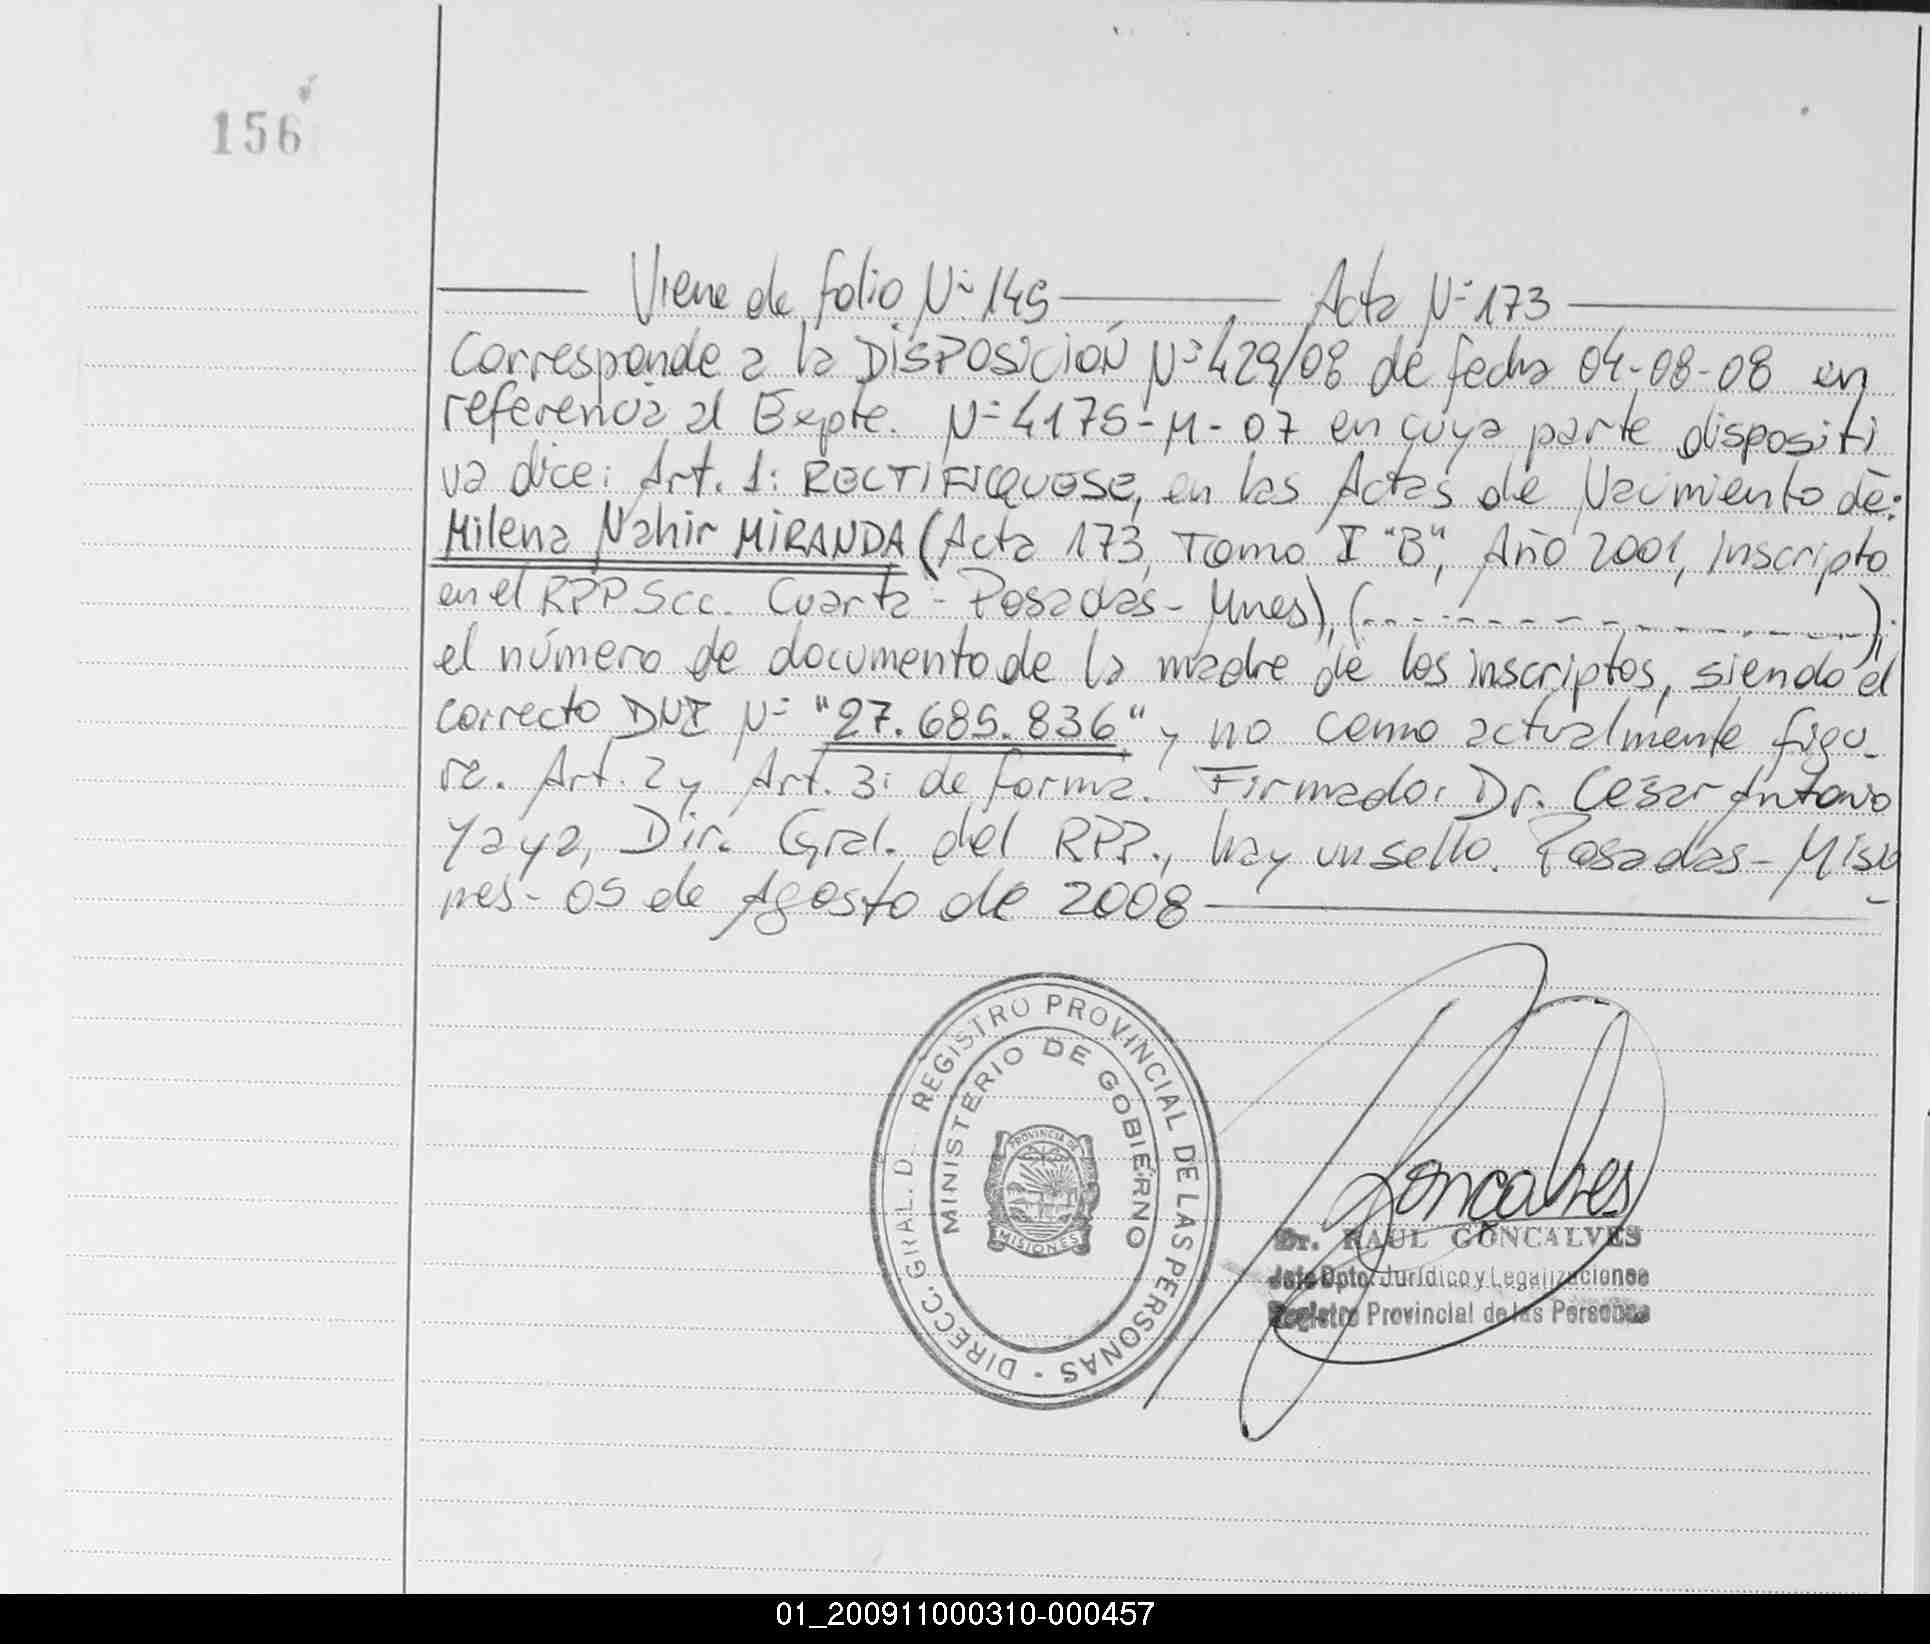 156
Viene de folio Nº 145 Acta Nº 173
Corresponde a la DISPOSICIÓN Nº 429/08 de fecha 04-08-08 en
referencia al Expte. Nº 4175-M-07 en cuya parte dispositi
va dice: Art. 1: RECTIFICQUESE, en las Actas de Nacimiento de:
Milena Nahir MIRANDA (Acta 173, Tomo I "B", Año 2001, inscripto
en el RPP Scc. Cuarta - Posadas - Mnes), (- - - - - - - - - - - -),
el número de documento de la madre de los inscriptos, siendo el
correcto DNI Nº "27.685.836" y no como actualmente figu-
ra. Art. 2 y Art. 3: de forma. Firmado: Dr. Cesar Antonio
Yaya, Dir. Gral. del RPP., hay un sello. Posadas - Misio
nes - 05 de Agosto de 2008
DIRECC. GRAL. D. REGISTRO PROVINCIAL DE LAS PERSONAS -
MINISTERIO DE GOBIERNO
PROVINCIA DE
MISIONES
Goncalves
Dr. RAUL GONCALVES
Jefe Dpto. Jurídico y Legalizaciones
Registro Provincial de las Personas
01_200911000310-000457